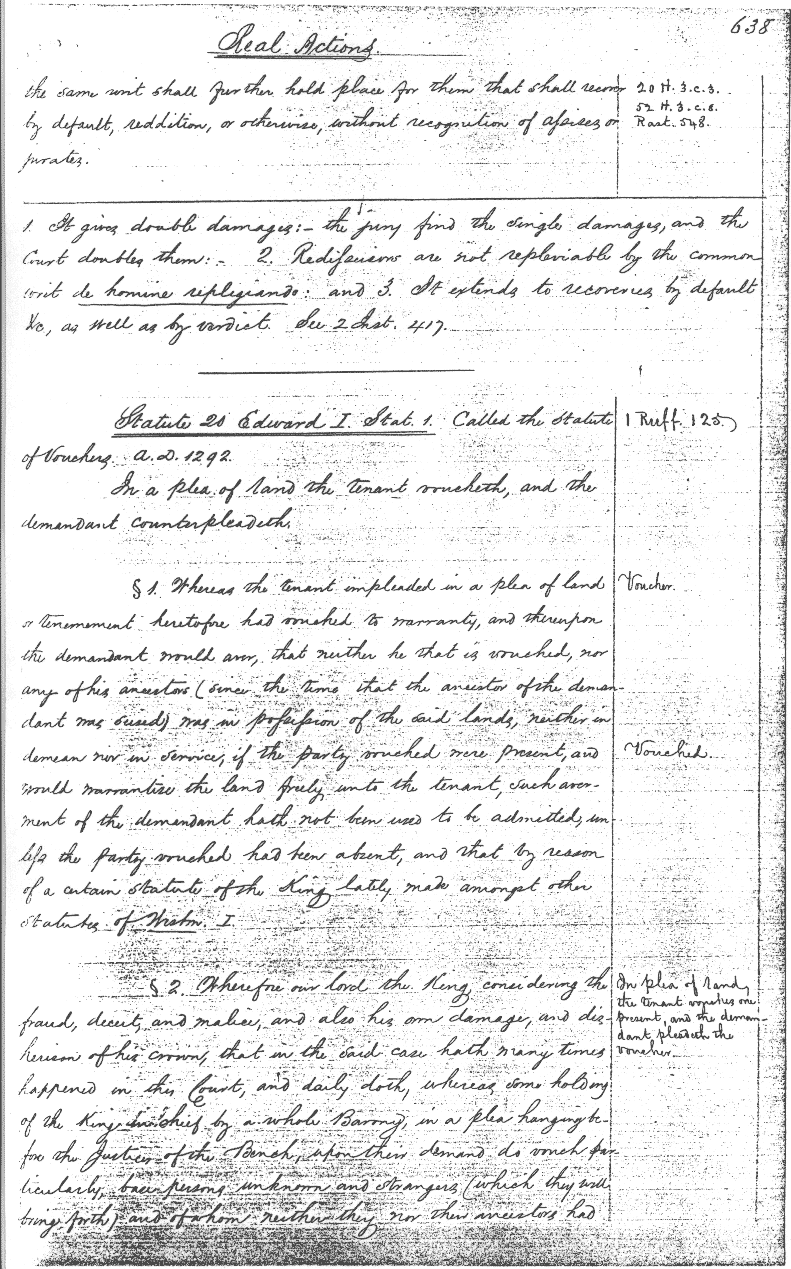 638
Real Actions.
the same writ shall further hold place for them that shall recover
by default, reddition, or otherwise, without recognition of assises or
jurates.
20 H. 3. c. 3.
52 H. 3. c. 8.
Rast. 548.
1. It gives double damages:- the jury find the single damages, and the
Court doubles them:- 2. Redisseisons are not repleviable by the common
writ de homine replegiando: and 3. It extends to recoveries by default
&c, as well as by verdict. See 2 Inst. 417.
Statute 20 Edward I. Stat. 1. Called the Statute
of Vouchers. A.D. 1292.
1 Ruff. 125.
In a plea of land the tenant voucheth, and the
demandant counterpleadeth.
§ 1. Whereas the tenant impleaded in a plea of land
or tenemement heretofore had vouched to warranty, and thereupon
the demandant would aver, that neither he that is vouched, nor
any of his ancestors (since the time that the ancestor of the deman-
dant was seised) was in possession of the said lands, neither in
demean nor in service, if the party vouched were present, and
would warrantise the land freely unto the tenant, such aver-
ment of the demandant hath not been used to be admitted, un-
less the party vouched had been absent, and that by reason
of a certain statute of the King lately made amongst other
statutes of Westm. I.
Voucher.
Vouched.
§ 2. Wherefore our lord the King, considering the
fraud, deceit, and malice, and also his own damage, and dis-
herison of his crown, that in the said case hath many times
happened in this Court, and daily doth, whereas some holding
of the King in chief by a whole Barony, in a plea hanging be-
fore the Justices of the Bench, upon their demand do vouch par-
ticularly, base persons unknown and strangers (which they will
bring forth) and of whom neither they nor their ancestors had
In plea of land,
the tenant vouches one
present, and the deman-
dant pleadeth the
voucher.